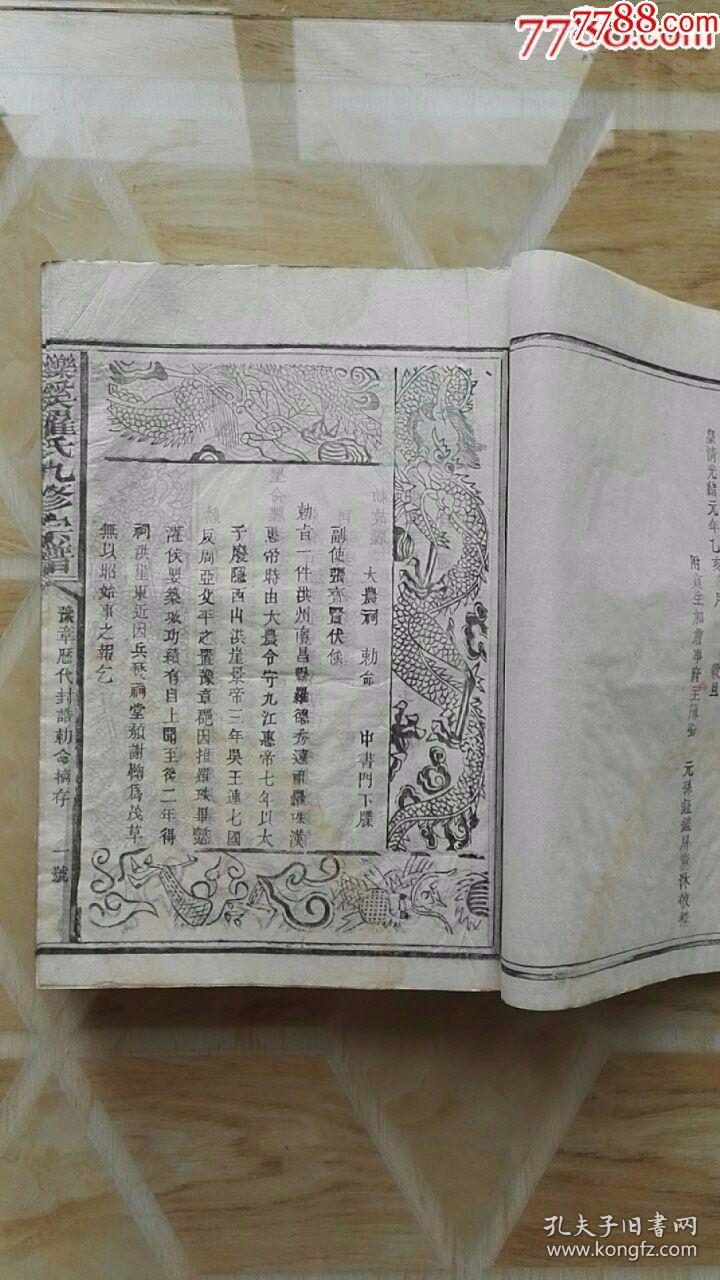 7788.com
7788.com
皇清光緒元年乙亥 月 穀旦
附貢生加詹事府主簿
大農祠 勅命 中書門下牒
副使張齊賢伏候
勅旨一件洪州南昌縣羅德秀遠祖羅珠漢
惠帝時由大農令守九江惠帝七年以太
子廢隱西山洪崖景帝三年吳王連七國
反周亞父平之置豫章郡因推羅珠畢懿
灌侯嬰築城功績有自上聞至後二年得
祠洪崖東近因兵燹祠堂頹謝鞠為茂草
無以昭始事之報乞
羅氏九修宗譜
豫章歷代封誥勅命摘存
一號
孔夫子旧書网
www.kongfz.com